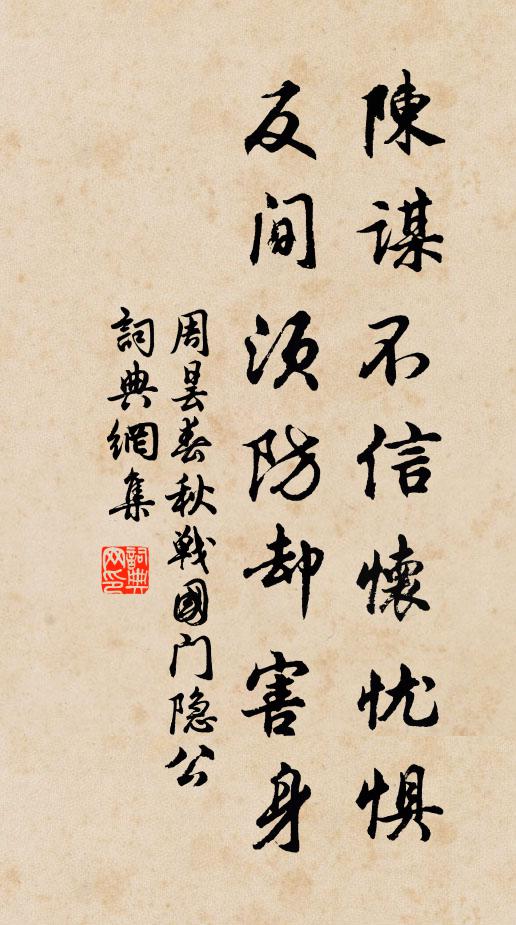 陳謀不信懷忧惧
反间须防却害身
周昙春秋戰國门隐公
詞典網集
詞典
网印